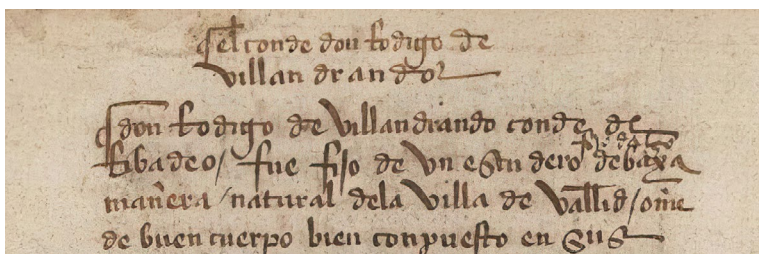 ¶ el conde don Rodigo de
villandrando
¶ don Rodigo de villandrando conde de
Ribadeo / fue fijo de vn escudero fijo dalgo de baxa
mañera / natural dela villa de vallid / ome
de buen cuerpo bien conpuesto en sus